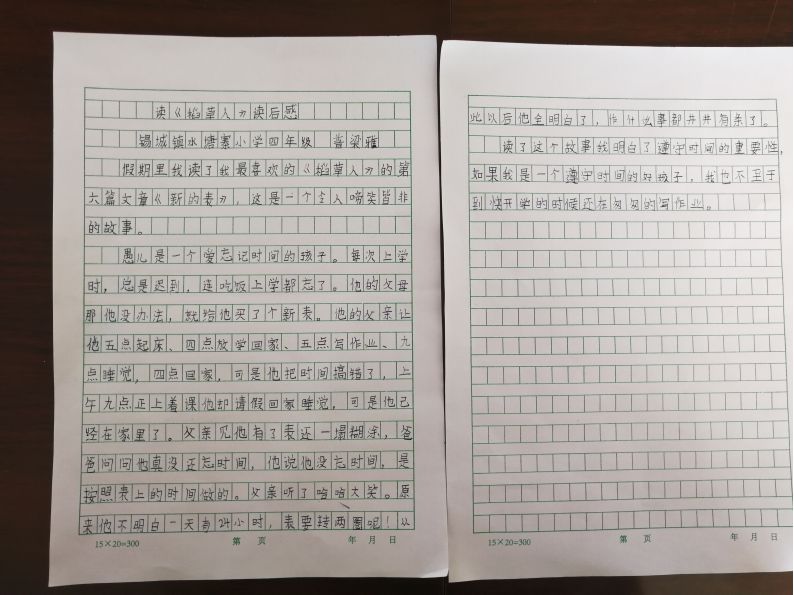 读《稻草人》读后感
锡城镇水塘寨小学四年级 普梁雅
假期里我读了我最喜欢的《稻草人》的第
六篇文章《新的表》，这是一个令人啼笑皆非
的故事。
愚儿是一个爱忘记时间的孩子。每次上学
时，总是迟到，连吃饭上学都忘了。他的父母
那他没办法，就给他买了个新表。他的父亲让
他五点起床、四点放学回家、五点写作业、九
点睡觉，四点回家，可是他把时间搞错了，上
午九点正上着课他却请假回家睡觉，可是他已
经在家里了。父亲见他有了表还一塌糊涂，爸
爸问问他真没还忘时间，他说他没忘时间，是
按照表上的时间做的。父亲听了哈哈大笑。原
来他不明白一天有24小时，表要转两圈呢！以
15×20=300 第 页 年 月 日
此以后他全明白了，作什么事都井井有条了。
读了这个故事我明白了遵守时间的重要性，
如果我是一个遵守时间的好孩子，我也不至于
到快开学的时候还在匆匆的写作业。
15×20=300 第 页 年 月 日